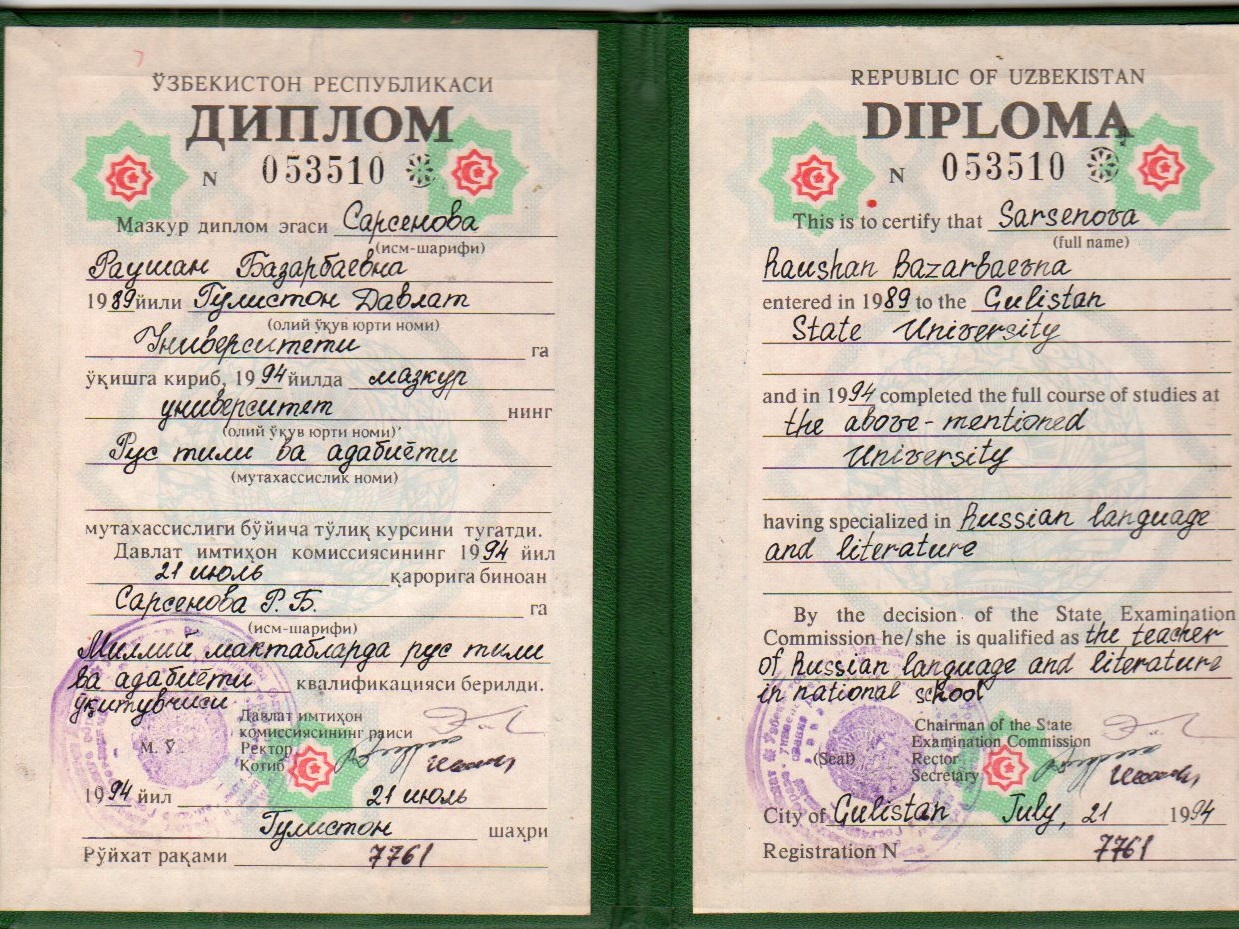 ЎЗБЕКИСТОН РЕСПУБЛИКАСИ
ДИПЛОМ
N 053510
Мазкур диплом эгаси Сарсенова
(исм-шарифи)
Раушан Базарбаевна
1989 йили Гулистон Давлат
(олий ўқув юрти номи)
Университети га
ўқишга кириб, 1994 йилда мазкур
университет нинг
(олий ўқув юрти номи)
Рус тили ва адабиёти
(мутахассислик номи)
мутахассислиги бўйича тўлиқ курсини тугатди.
Давлат имтиҳон комиссиясининг 1994 йил
21 июль қарорига биноан
Сарсенова Р. Б. га
(исм-шарифи)
Миллий мактабларда рус тили
ва адабиёти квалификацияси берилди.
ўқитувчиси
Давлат имтиҳон
комиссиясининг раиси
М. Ў. Ректор
Котиб
1994 йил 21 июль
Гулистон шаҳри
Рўйхат рақами 7761
REPUBLIC OF UZBEKISTAN
DIPLOMA
N 053510
This is to certify that Sarsenova
(full name)
Raushan Bazarbaevna
entered in 1989 to the Gulistan
State University
and in 1994 completed the full course of studies at
the above-mentioned
University
having specialized in Russian language
and literature
By the decision of the State Examination
Commission he/she is qualified as the teacher
of Russian language and literature
in national school
Chairman of the State
Examination Commission
(Seal) Rector
Secretary
City of Gulistan July, 21 1994
Registration N 7761